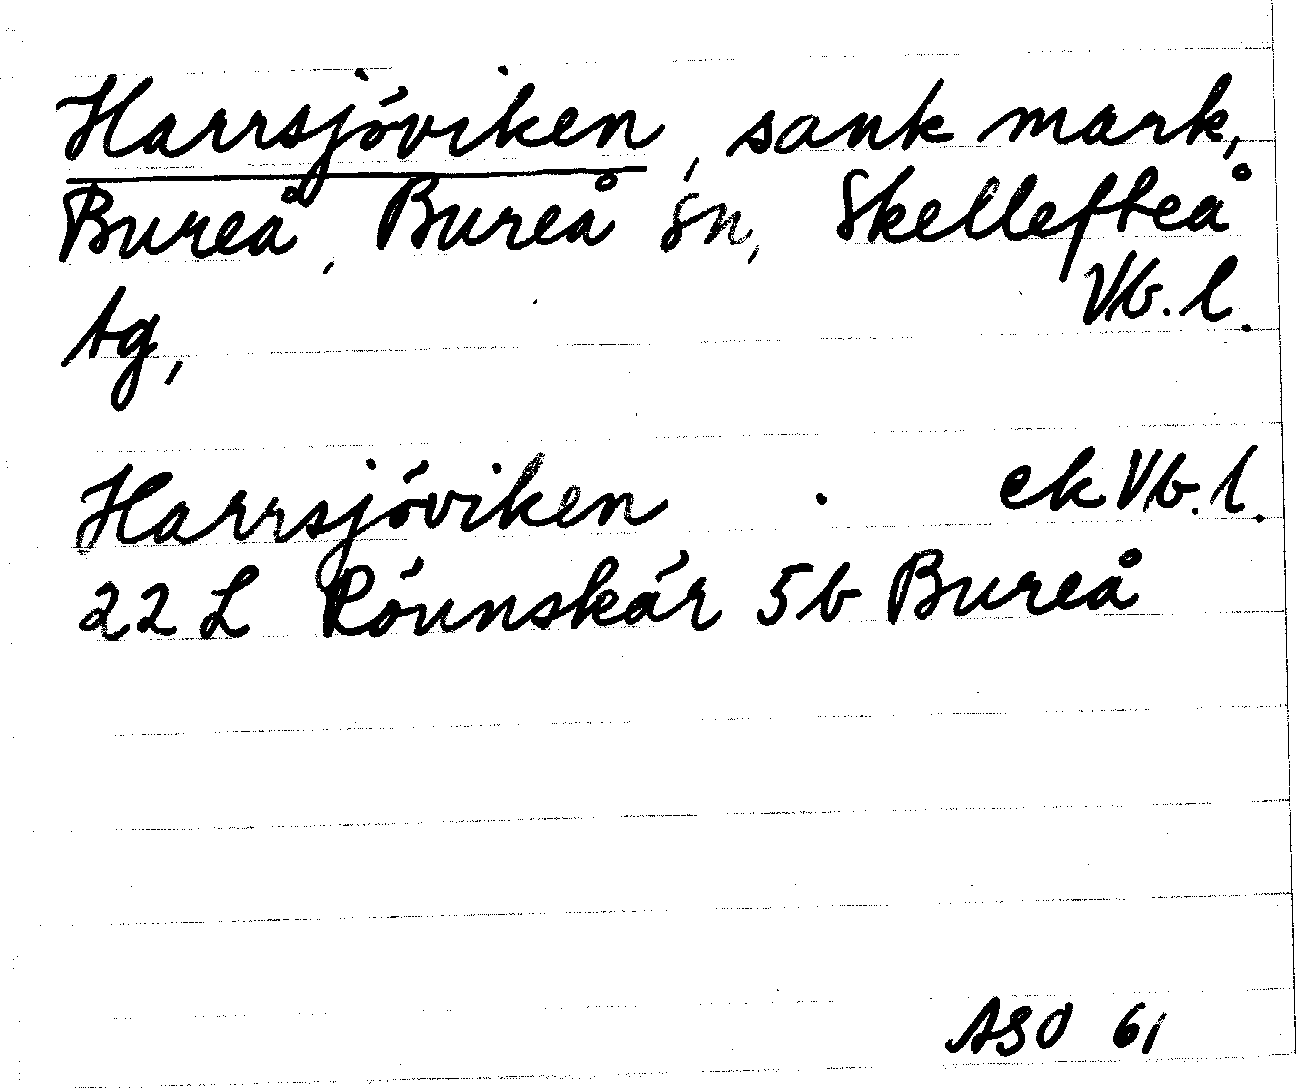 Harrsjöviken, sank mark,
Bureå, Bureå sn, Skellefteå
tg, Vb. l.
Harrsjöviken ek Vb. l.
22 L Rönnskär 5b Bureå
ASO 61